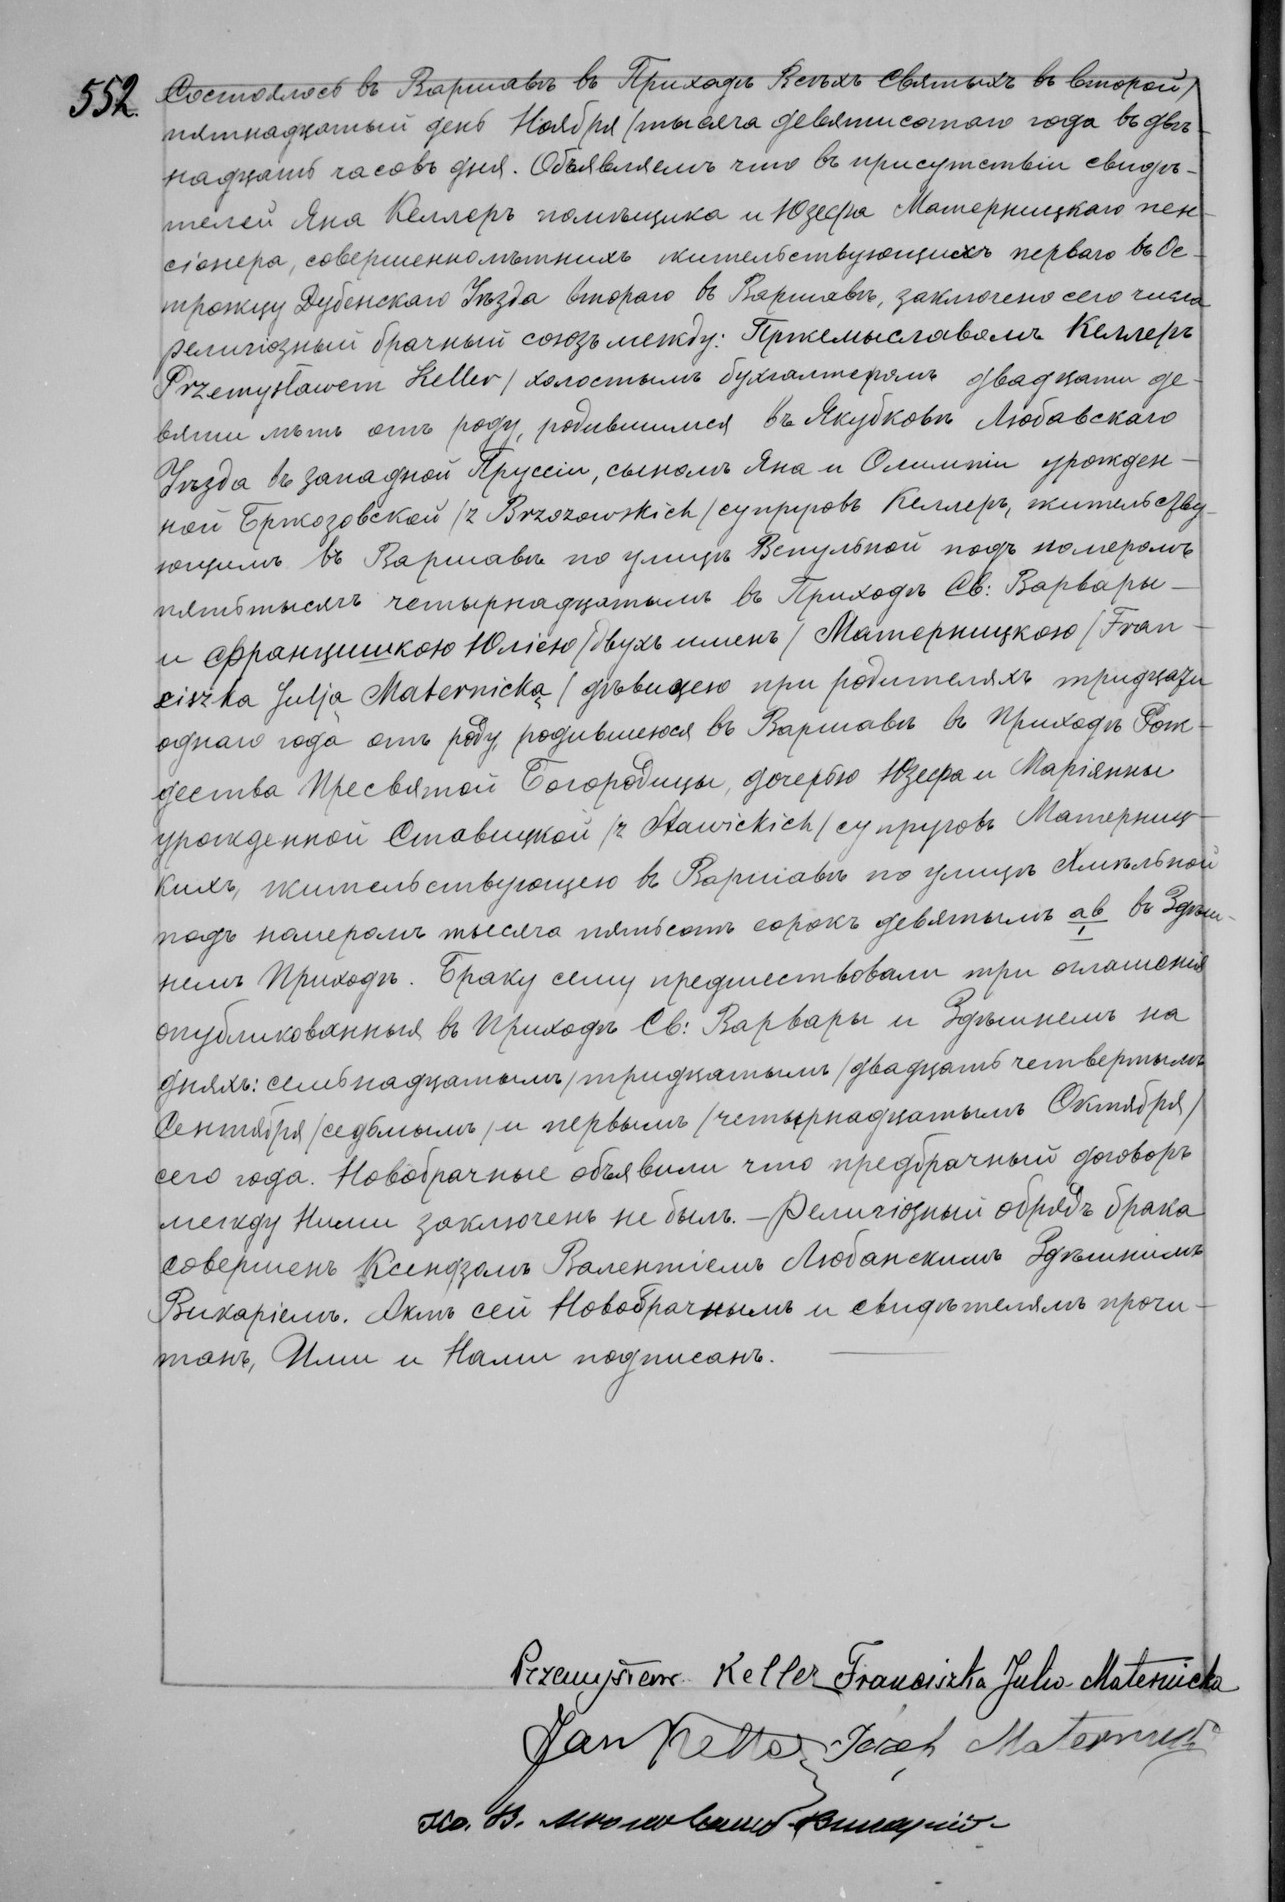 552.
Состоялось въ Варшавѣ въ Приходѣ Всѣхъ Святыхъ въ второй/
пятнадцатый день Ноября/тысяча девятисотаго года въ двѣ-
надцать часовъ дня. Объявляемъ что въ присутствіи свидѣ-
телей Яна Келлеръ помѣщика и Юзефа Матерницкаго пен-
сіонера, совершеннолѣтнихъ жительствующихъ перваго въ Ос-
трожцу Дубенскаго Уѣзда втораго въ Варшавѣ, заключено сего числа
религіозный брачный союзъ между: Пржемыславомъ Келлеръ
Przemysławem Keller/ холостымъ бухгалтеромъ двадцати де-
вяти лѣтъ отъ роду, родившимся въ Якубковѣ Любавскаго
Уѣзда въ западной Пруссіи, сыномъ Яна и Олимпіи урожден-
ной Бржозовской /z Brzozowskich/ супруговъ Келлеръ, жительству-
ющимъ въ Варшавѣ по улицѣ Вспульной подъ номеромъ
пятьтысячъ четырнадцатымъ въ Приходѣ Св: Варвары-
и Францишкою Юліею/двухъ именъ/ Матерницкою /Fran-
ciszka Julją Maternicką/ дѣвицею при родителяхъ тридцати
одного года отъ роду, родившеюся въ Варшавѣ въ Приходѣ Рож-
дества Пресвятой Богородицы, дочерью Юзефа и Маріянны
урожденной Ставицкой /z Stawickich/ супруговъ Матерниц-
кихъ, жительствующею въ Варшавѣ по улицѣ Хмѣльной
подъ номеромъ тысяча пятьсотъ сорокъ девятымъ ав въ Здѣш-
немъ Приходѣ. Браку сему предшествовали три оглашенія
опубликованныя въ Приходѣ Св: Варвары и Здѣшнемъ на
дняхъ: семьнадцатымъ/тридцатымъ/двадцать четвертымъ
Сентября/седьмымъ/и первымъ/четырнадцатымъ Октября/
сего года. Новобрачные объявили что предбрачный договоръ
между Ними заключенъ не былъ. - Религіозный обрядъ брака
совершенъ Ксендзомъ Валентіемъ Любанскимъ Здѣшнимъ
Викаріемъ. Актъ сей Новобрачнымъ и свидѣтелямъ прочи-
танъ, Ими и Нами подписанъ.
Przemysław Keller Franciszka Julia Maternicka
Jan Keller Józef Maternicki
Кс. В.